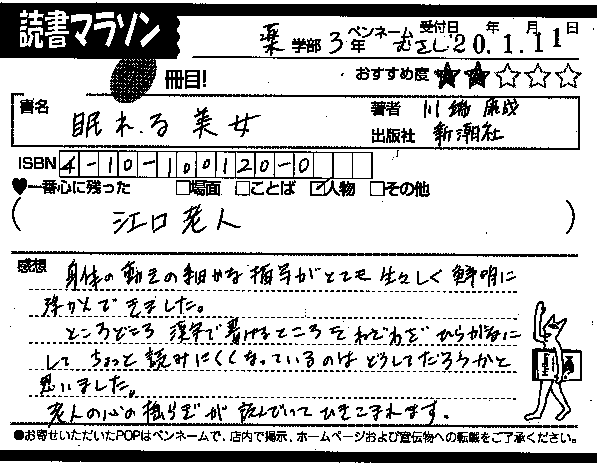 読書マラソン
薬 学部 3 年 ペンネーム むさし 受付日 20 年 1 月 11 日
冊目! おすすめ度 ★★☆☆☆
書名 眠れる美女 著者 川端康成
出版社 新潮社
ISBN 4-10-100120-0
♥一番心に残った □場面 □ことば ☑人物 □その他
( 江口老人 )
感想 身体の動きの細かな描写がとても生々しく鮮明に
浮かんできました。
ところどころ漢字で書けるところをわざわざひらがなに
して ちょっと読みにくくなっているのはどうしてだろうかと
思いました。
老人の心の揺らぎが読んでいてひきこまれます。
●お寄せいただいたPOPはペンネームで、店内で掲示、ホームページおよび宣伝物への転載をご了承ください。